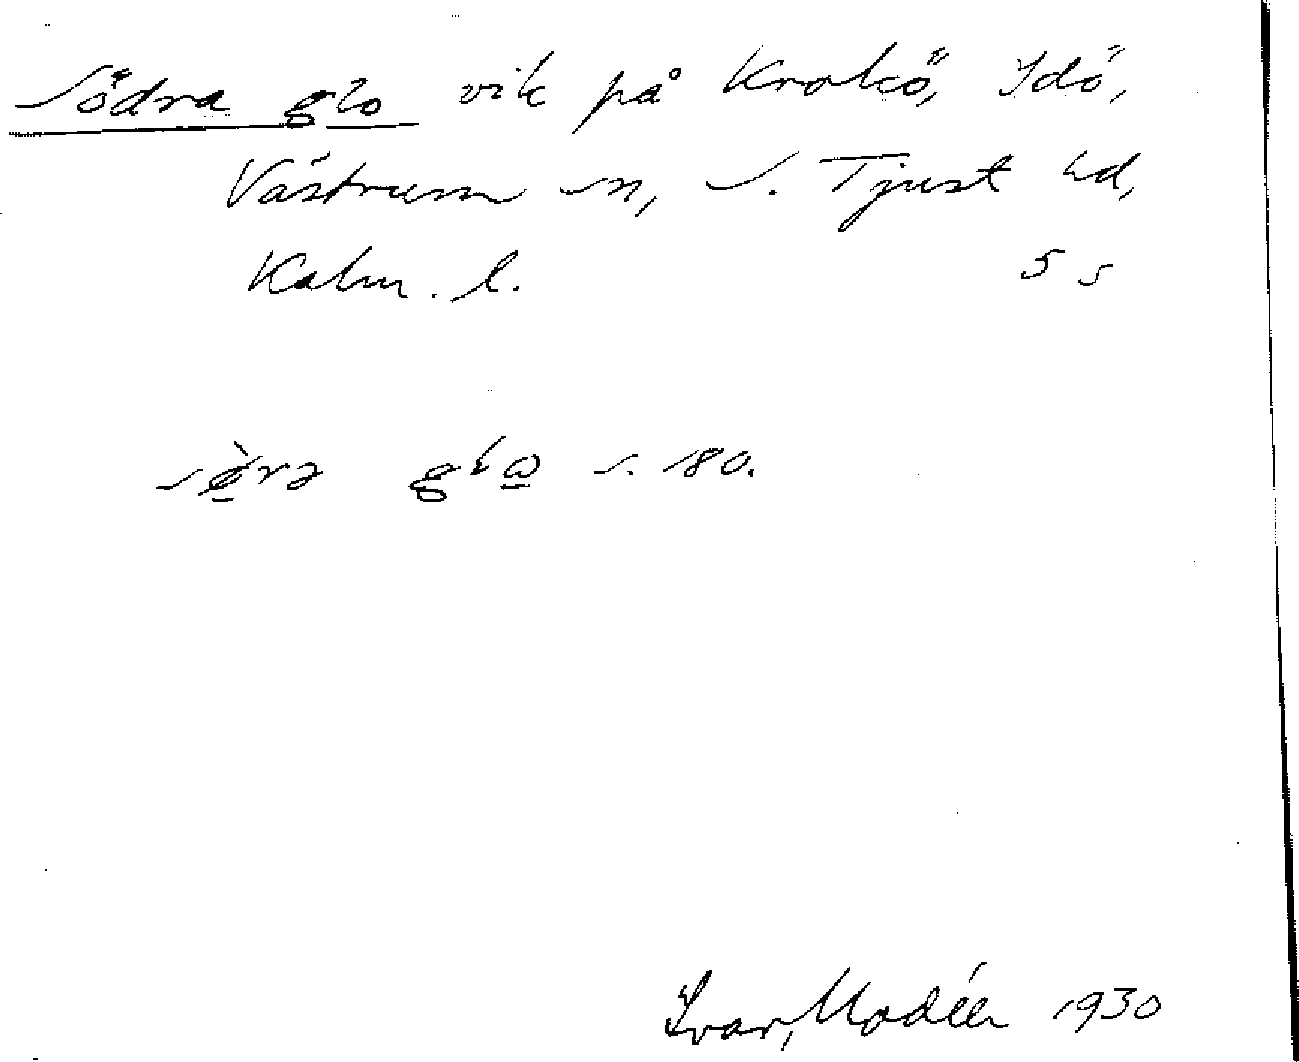 Södra glo vik på Krokö, Idö,
Västrum sn, S. Tjust hd,
Kalm. l. 5 s
s. 180.
Ivar Modéer 1930